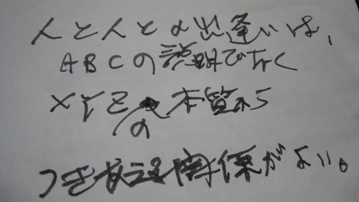 人と人との出逢いは、
ABCの説明でなく
XYZの本質から
つき合える関係がよい。